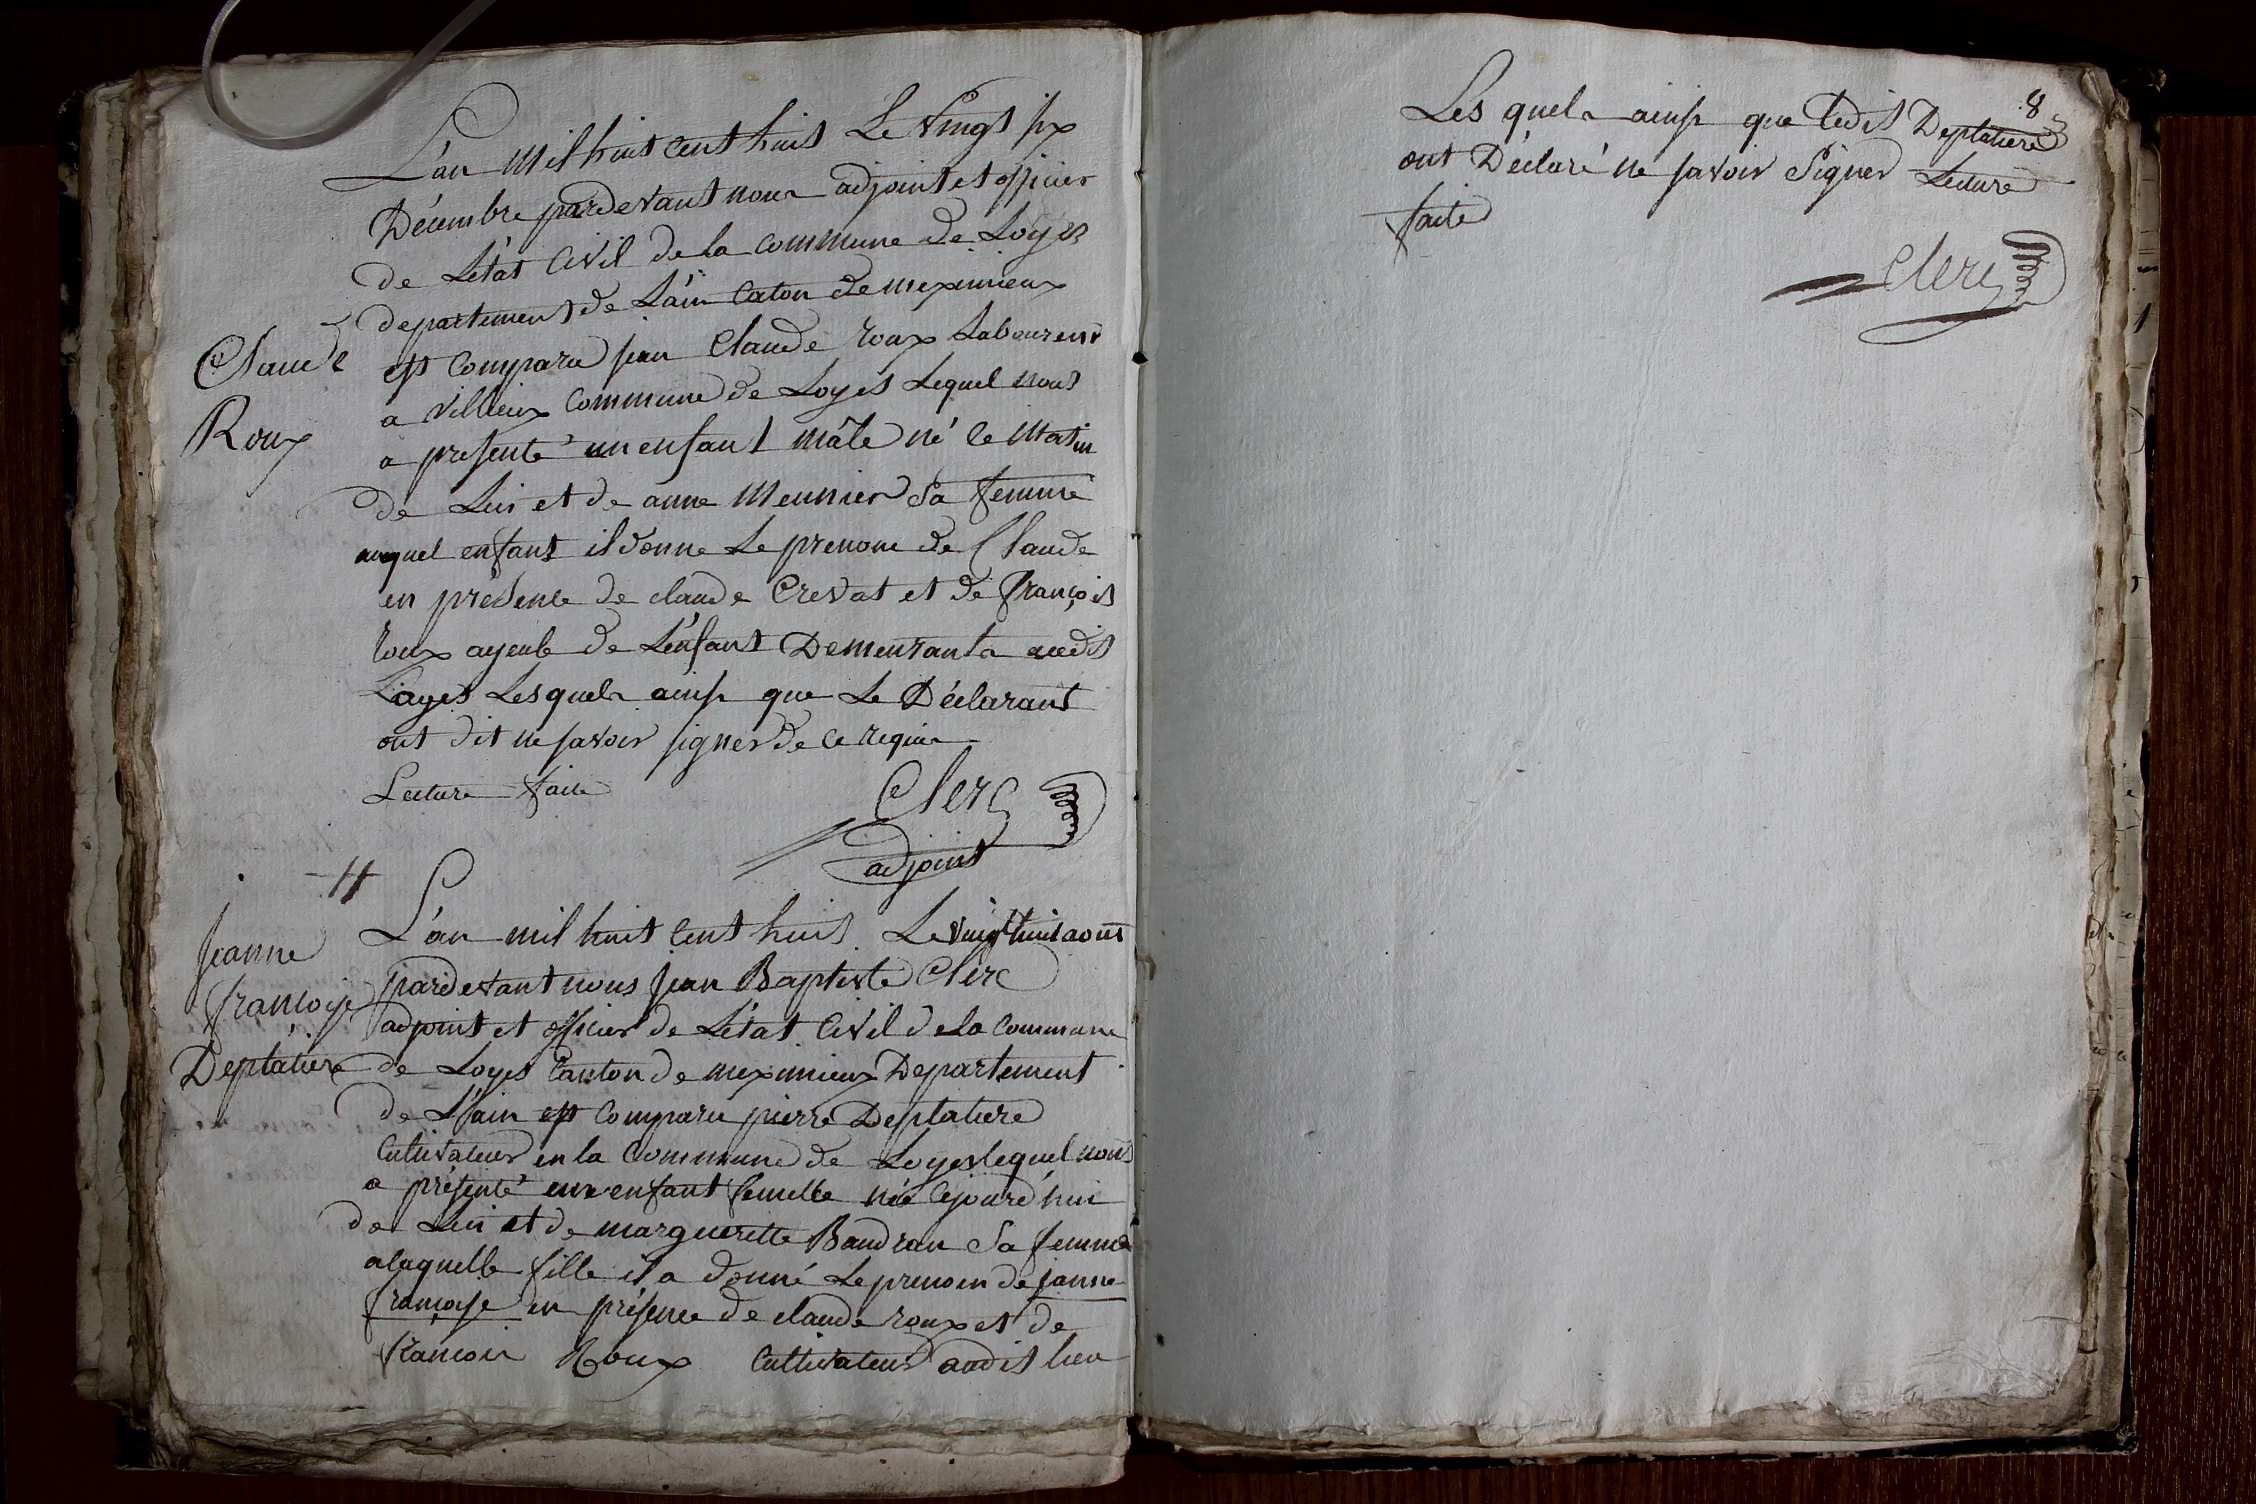 L'an mil huit cent huit Le Vingt six
Décembre pardevant nous adjoint et officier
de Létat Civil de la commune de Loyes
departement de Lain Caton de meximieux
est Comparu jean Claude roux Laboureur
a Villieux Commune de Loyes Lequel nous
a presenté un enfant mâle né le Matin
de Lui et de anne Meunier Sa femme
auquel enfant il donne Le prenom de Claude
en presence de claude Crevat et de François
roux ayeule de Lenfant Demeurants audit
Loyes Lesquels ainsi que Le Déclarant
ont dit ne savoir signer de ce requis
Lecture faite
Clerc
adjoint
Claude
Roux
L'an mil huit cent huit Le vingt huit aout
pardevant nous jean Baptiste Clerc
adjoint et officier de Létat Civil de la Commune
de Loyes Canton de meximieux Departement
de L'ain est Comparu pierre Deplatiere
Cultivateur en la Commune de Loyes lequel nous
a présenté une enfant femelle née cejourd'hui
de Lui et de marguerette Baudran Sa femme
alaquelle fille il a donné Le prenom de janne
françoise en présence de claude roux et de
françois Roux Cultivateur audit lieu
jeanne
françoise
Deplatiere
8
Les quels ainsi que ledit Deplatiere
ont Déclaré ne savoir Signer Lecture
faite
Clerc